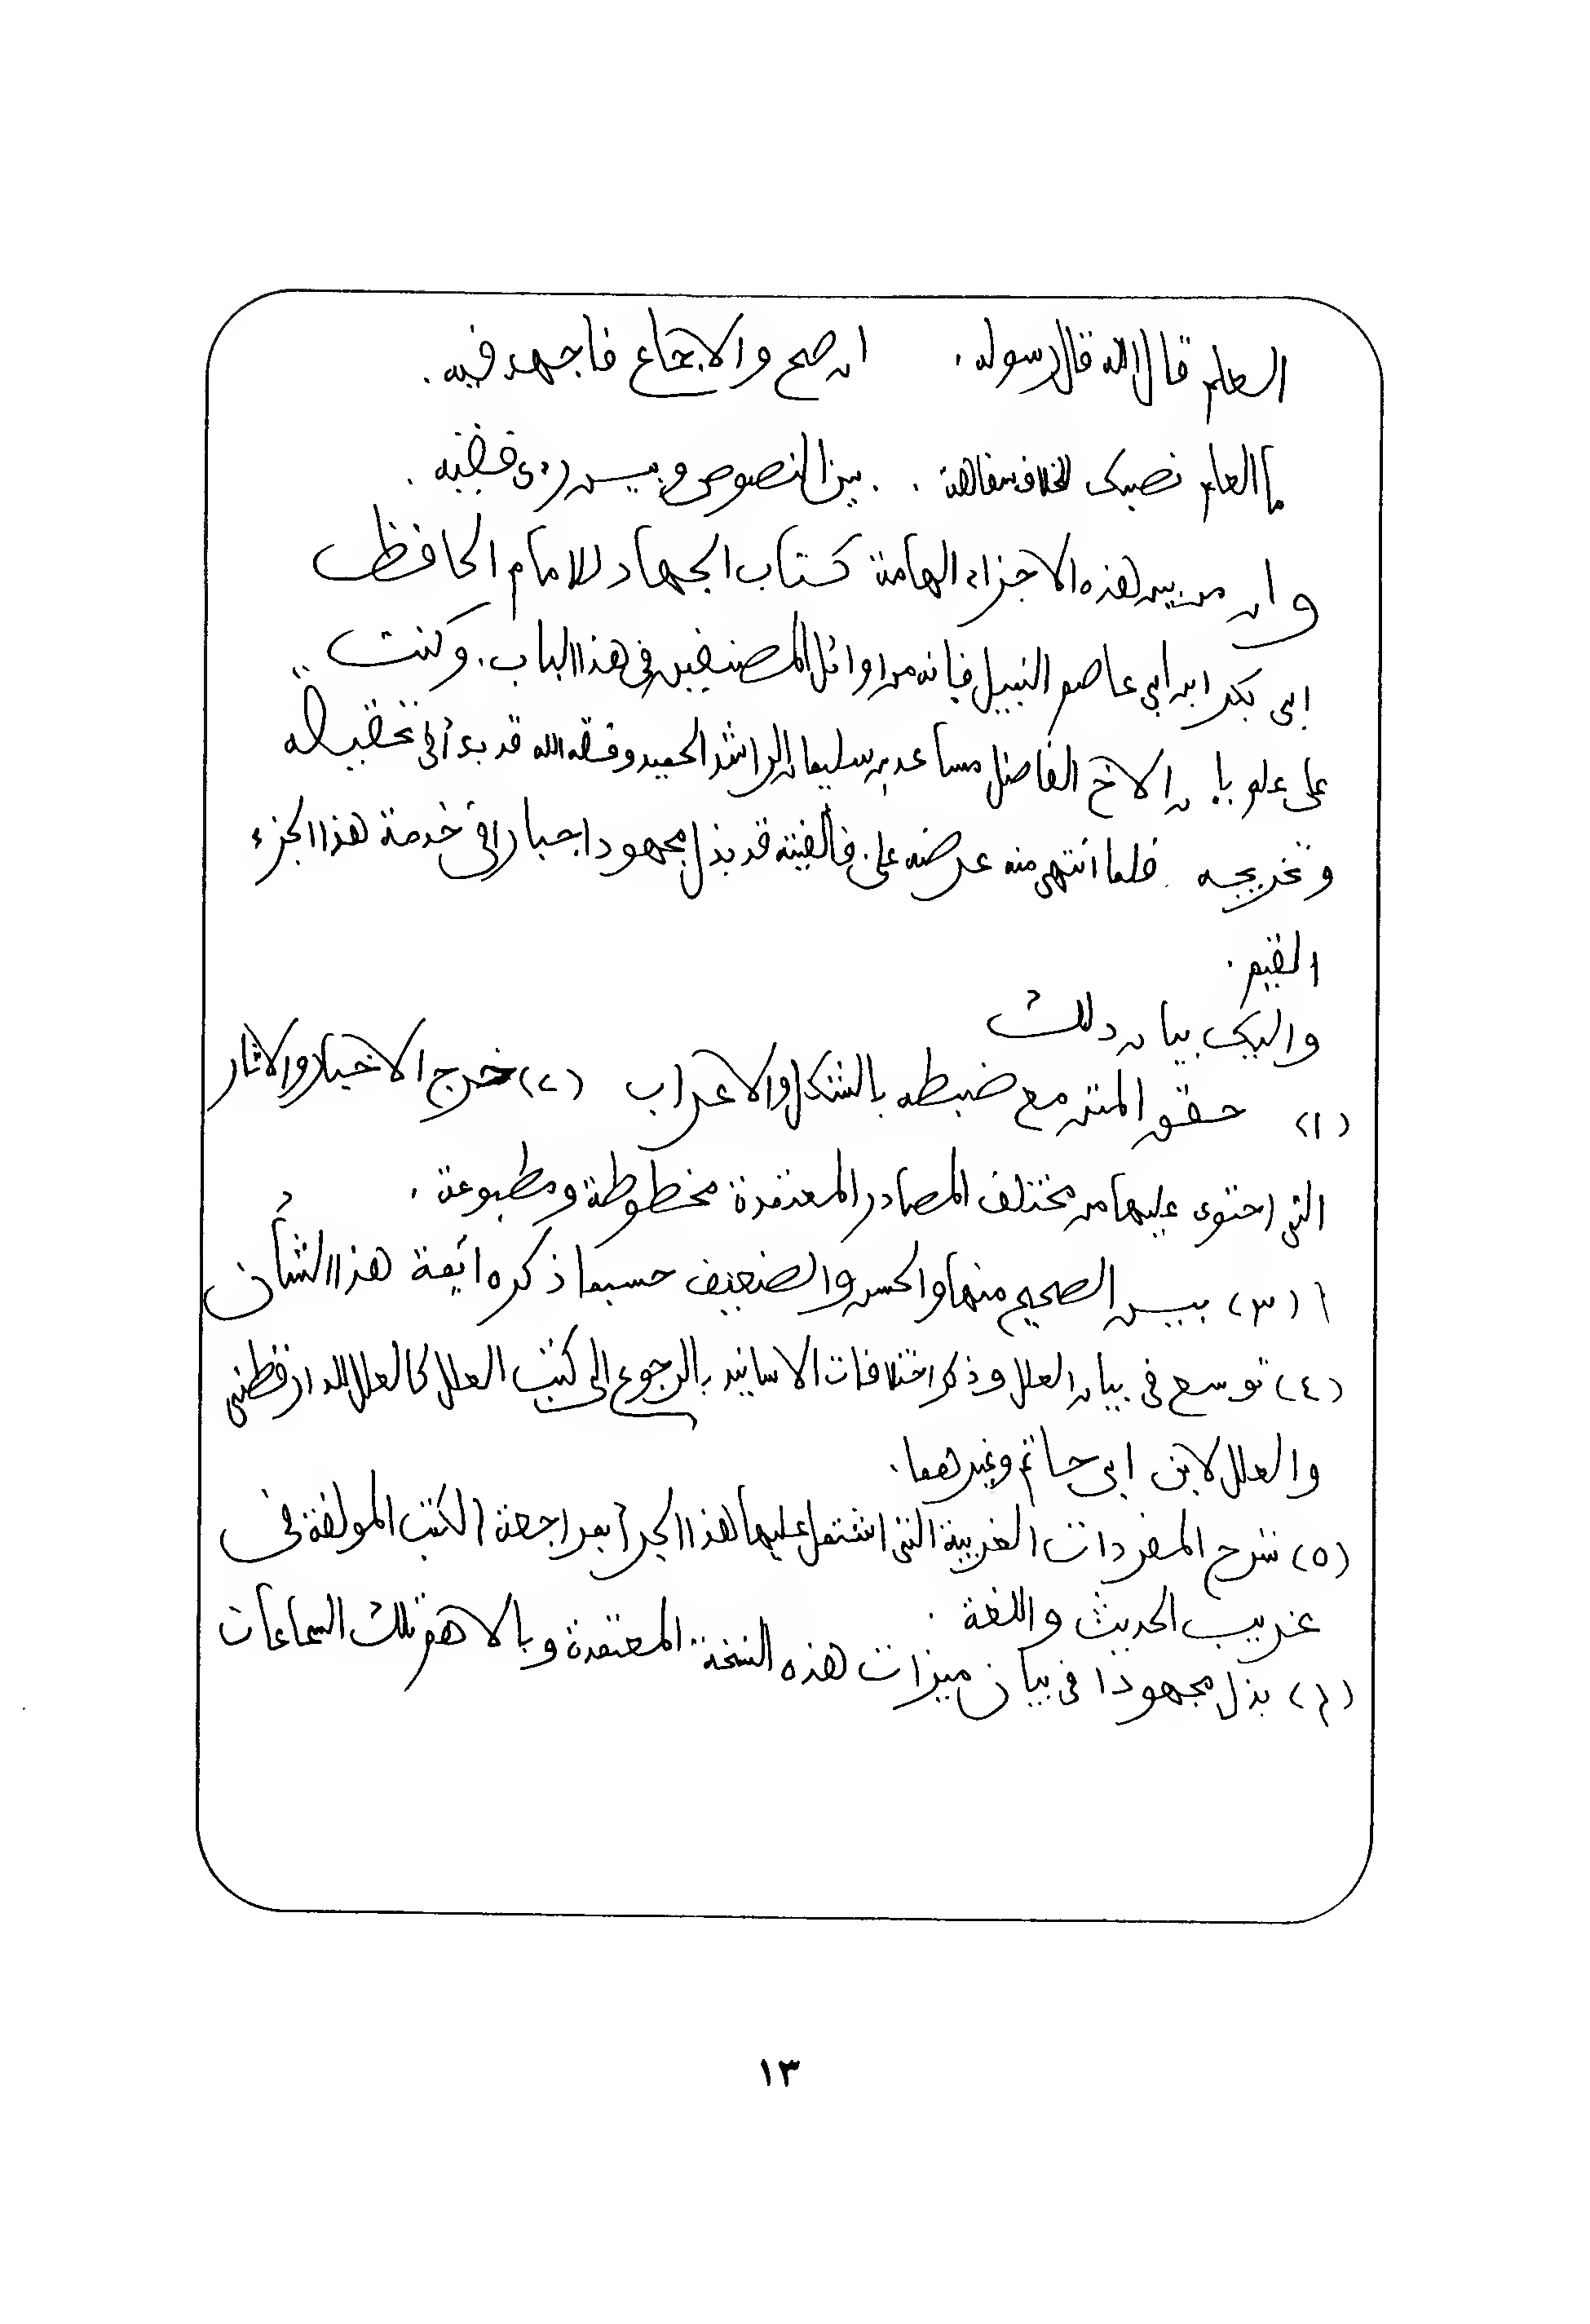 العلم قال الله قال رسوله . ان صح والاجماع فاجهد فيه .
ما العلم نصبك للخلاف سفاهة . . بين النصوص وبين رءى فقيه .
وان من بين هذه الاجزاء الهامة كتاب الجهاد للامام الحافظ
ابى بكر ابن ابي عاصم النبيل فانه من اوائل المصنفين في هذا الباب . وكنت
على علم بان الاخ الفاضل مساعد بن سليمان الراشد الحميد وفقه الله قد بدأ في تحقيقه
وتخريجه . فلما انتهى منه عرضه على . فألفيته قد بذل مجهودا جبارا في خدمة هذا الجزء
القيم .
واليك بيان ذلك
(١) حقق المتن مع ضبطه بالشكل والاعراب (٢) خرج الاخبار والاثار
التى احتوى عليها من مختلف المصادر المعتمدة مخطوطة ومطبوعة .
(٣) بين الصحيح منها والحسن والضعيف حسبما ذكره ائمة هذا الشأن
(٤) توسع في بيان العلل وذكر اختلافات الاسانيد بالرجوع الى كتب العلل كالعلل للدارقطنى
والعلل لابن ابى حاتم وغيرهما .
(٥) شرح المفردات الغريبة التى اشتمل عليها هذا الجزأ بمراجعة الكتب المولفة في
غريب الحديث واللغة .
(٦) بذل مجهودا في بيان ميزات هذه النسخة المعتمدة وبالاهم تلك السماعات
١٣